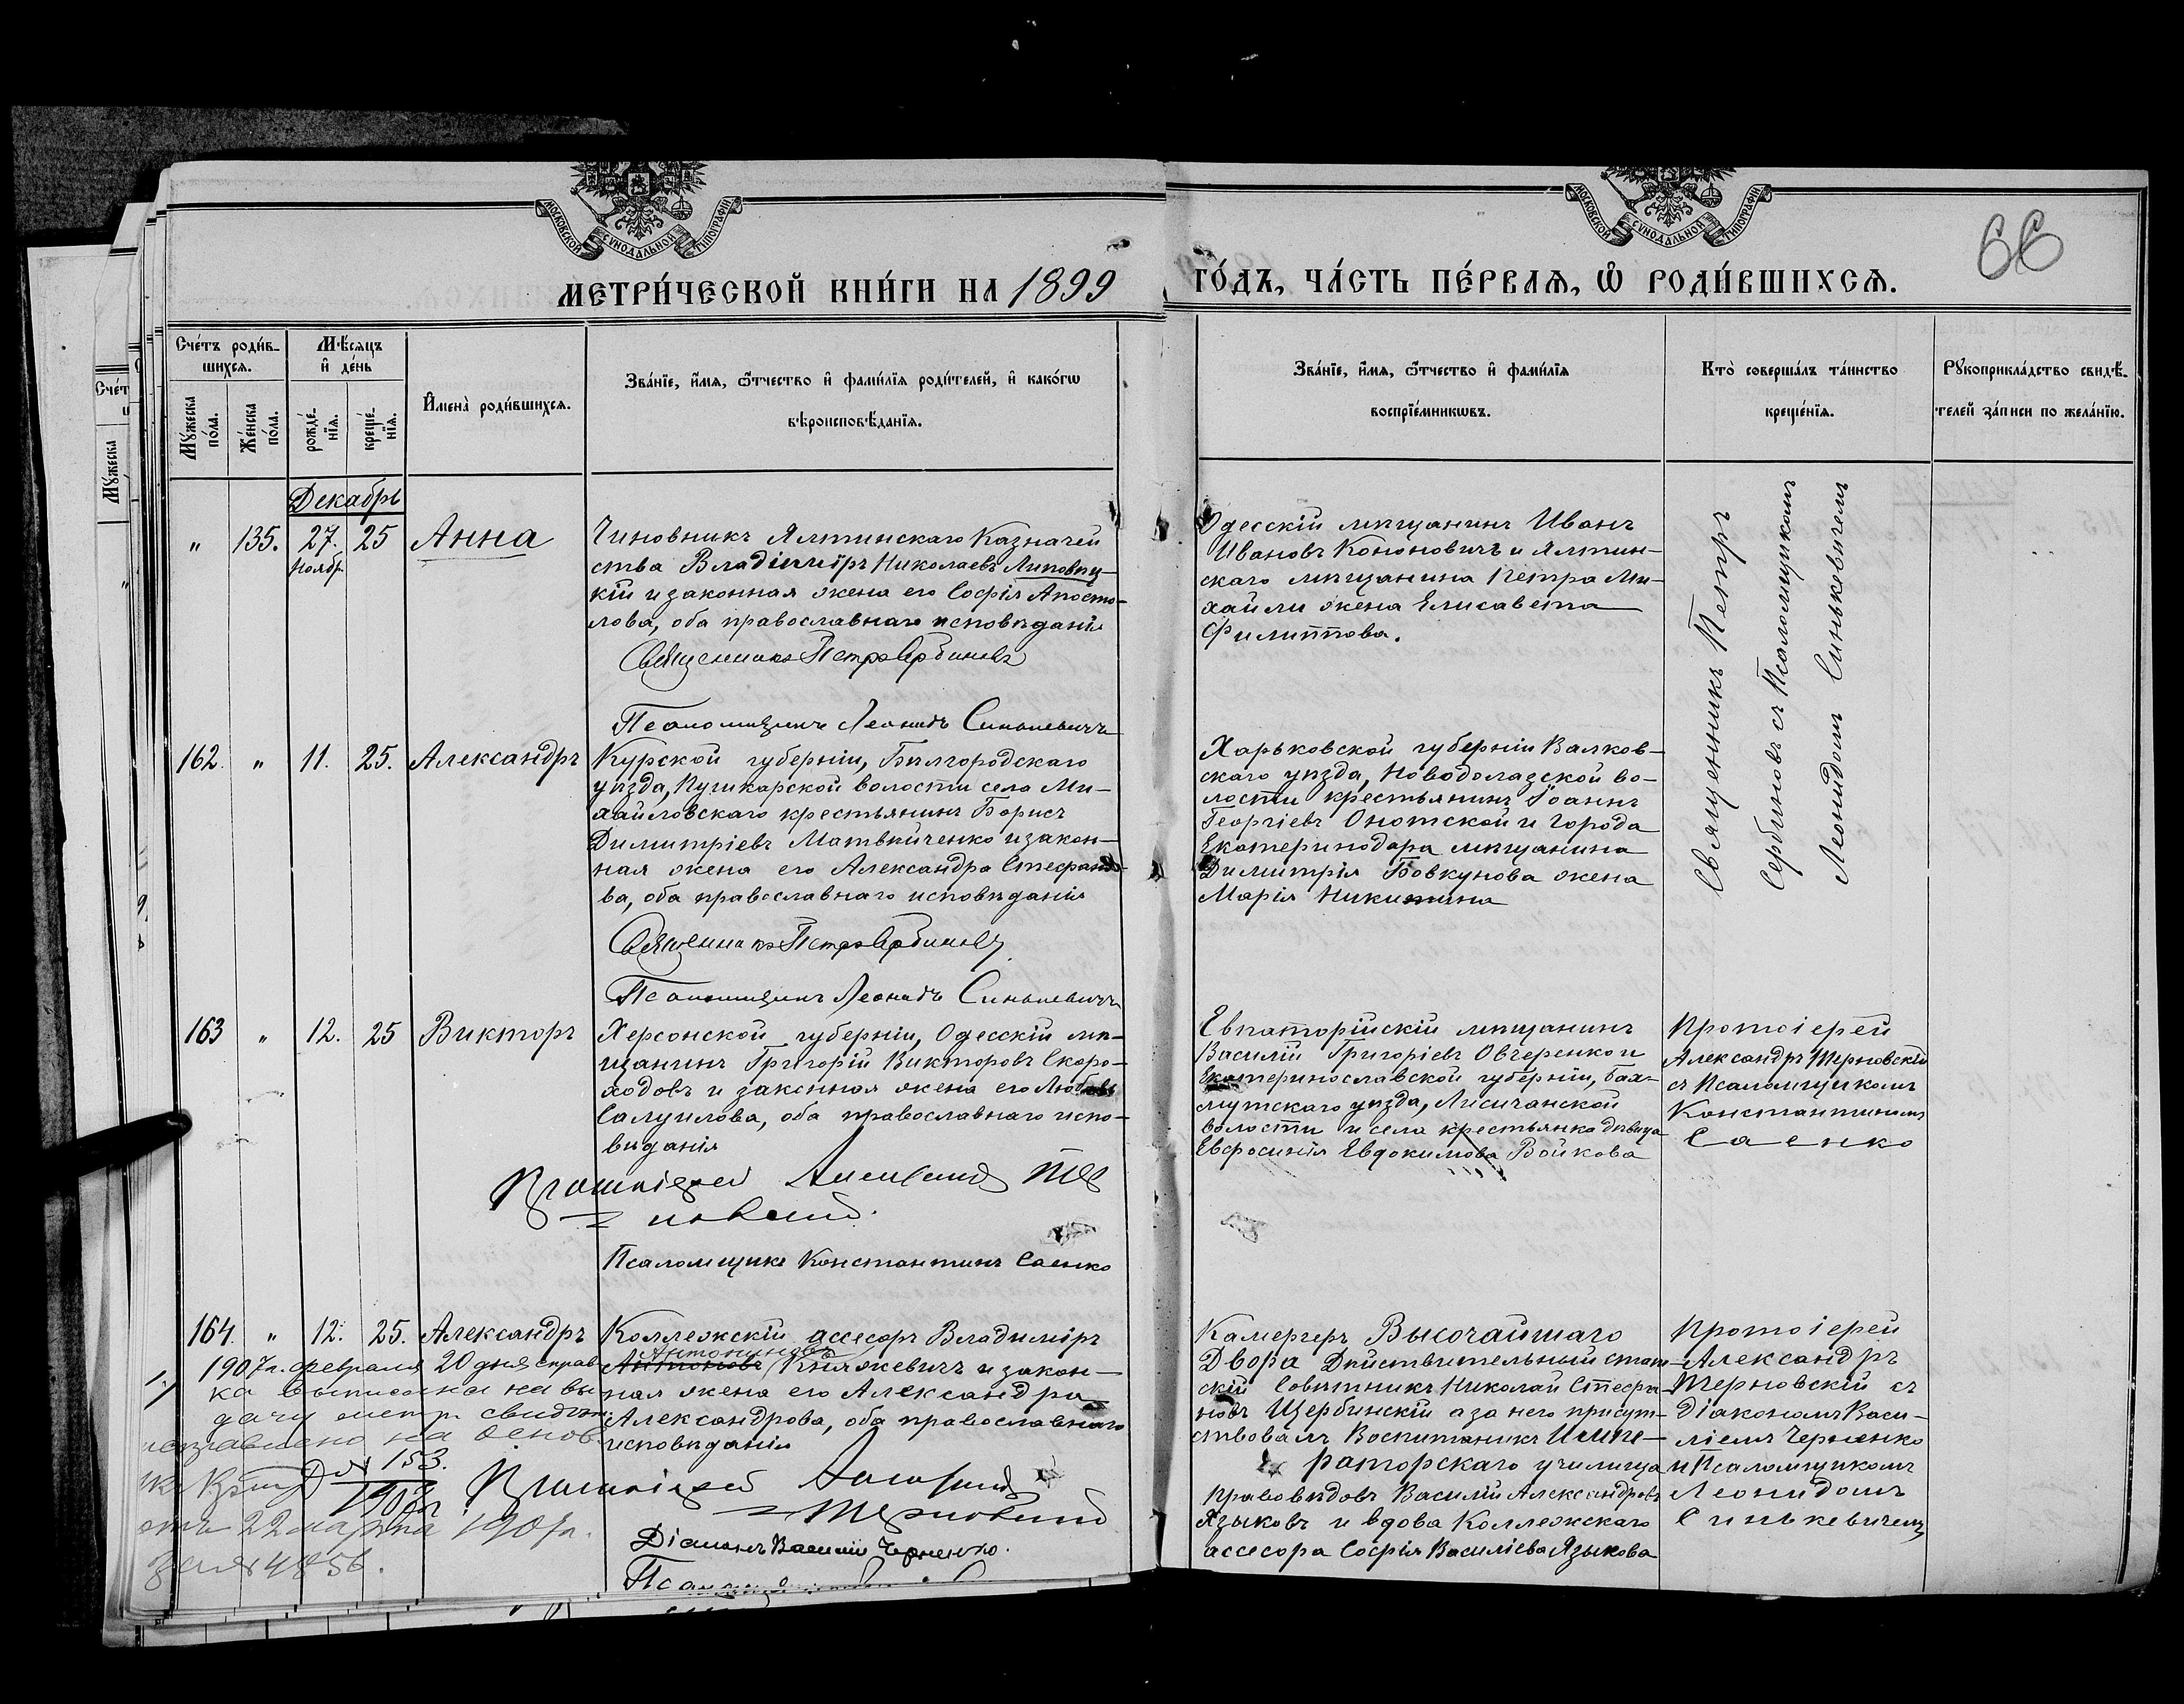 МОСКОВСКОЙ СѴНОДАЛЬНОЙ ТИПОГРАФІИ
МОСКОВСКОЙ СѴНОДАЛЬНОЙ ТИПОГРАФІИ
66
МЕТРИ́ЧЕСКОЙ КНИ́ГИ НА 1899 ГО́ДЪ, ЧА́СТЬ ПЕ́РВАѦ, Ѡ҆ РОДИ́ВШИХСѦ.
Сче́тъ роди́в-
шихсѧ.
Мѹ́жеска по́ла.
Же́нска по́ла.
Мѣ́сѧцъ
и҆ де́нь
рожде́-
нїѧ.
креще́-
нїѧ.
И҆мена̀ роди́вшихсѧ.
Зва́нїе, и҆́мѧ, ѻ҆́тчество и҆ фами́лїѧ роди́телей, и҆ како́гѡ
вѣроисповѣ́данїѧ.
Зва́нїе, и҆́мѧ, ѻ҆́тчество и҆ фами́лїѧ
воспрїе́мникѡвъ.
Кто̀ соверша́лъ та́инство
креще́нїѧ.
Рꙋкоприкла́дство свидѣ́-
телей за́писи по жела́нїю.
Декабрь
" 135. 27. 25 Анна
Ноябр.
Чиновникъ Ялтинскаго Казначей
ства Владиміръ Николаевъ Липовец-
кій и законная жена его Софія Апосто-
лова, оба православнаго исповѣданія
Священникъ Петръ Сербиновъ
Псаломщикъ Леонидъ Синькевичъ
Одесскій мѣщанинъ Иванъ
Ивановъ Кононовичъ и Ялтин-
скаго мѣщанина Петра Ми-
хайли жена Елисавета
Филиппова.
Священникъ Петръ
Сербиновъ съ Псаломщикомъ
Леонидомъ Синькевичемъ
162. " 11. 25. Александръ
Курской губерніи, Бѣлгородскаго
уѣзда, Пушкарской волости села Ми-
хайловскаго крестьянинъ Борисъ
Димитріевъ Матвѣйченко и закон-
ная жена его Александра Стефано-
ва, оба православнаго исповѣданія
Священникъ Петръ Сербиновъ
Псаломщикъ Леонидъ Синькевичъ
Харьковской губерніи Валков-
скаго уѣзда, Новодолазской во-
лости крестьянинъ Іоаннъ
Георгіевъ Онотской и города
Екатеринодара мѣщанина
Димитрія Бовкунова жена
Марія Никитина
163 " 12. 25 Викторъ
Херсонской губерніи, Одесскій мѣ-
щанинъ Григорій Викторовъ Скоро-
ходовъ и законная жена его Любовь
Самуилова, оба православнаго испо-
вѣданія
Протоіерей Александръ Тер
новскій.
Псаломщикъ Константинъ Саенко
Евпаторійскій мѣщанинъ
Василій Григоріевъ Овчеренко и
Екатеринославской губерніи, Бах-
мутскаго уѣзда, Лисичанской
волости и села крестьянка дѣвица
Евфросинія Евдокимова Войкова
Протоіерей
Александръ Терновскій
съ Псаломщикомъ
Константиномъ
Саенко
164. " 12. 25. Александръ
Коллежскій ассесоръ Владиміръ
Антониновъ
Антоновъ Княжевичъ и закон-
ная жена его Александра
Александрова, оба православнаго
исповѣданія
Протоіерей Александръ
Терновскій
Діаконъ Василій Черненко.
1907 г. февраля 20 дня справ
ка выписана на вы
дачу метр. свидѣт.
исправлено на основ.
№ 153.
1907 г.
отъ 22 марта 1907 г.
за № 4856.
Камергеръ Высочайшаго
Двора Дѣйствительный стат-
скій Совѣтникъ Николай Стефа-
новъ Щербинскій а за него присут-
ствовалъ Воспитаникъ Импе-
раторскаго училища
Правовѣдовъ Василій Александровъ
Языковъ и вдова Коллежскаго
ассесора Софія Василіева Языкова
Протоіерей
Александръ
Терновскій съ
Діакономъ Васи-
ліемъ Черненко
и Псаломщикомъ
Леонидомъ
Синькевичемъ